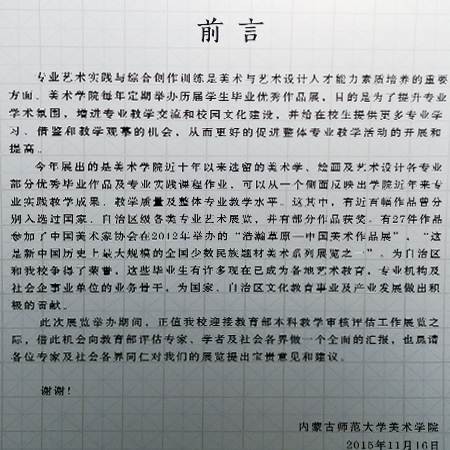 前言
专业艺术实践与综合创作训练是美术与艺术设计人才能力素质培养的重要
方面。美术学院每年定期举办历届学生毕业优秀作品展，目的是为了提升专业
学术氛围，增进专业教学交流和校园文化建设，并给在校生提供更多专业学
习、借鉴和教学观摩的机会，从而更好的促进整体专业教学活动的开展和
提高。
今年展出的是美术学院近十年以来选留的美术学、绘画及艺术设计各专业
部分优秀毕业作品及专业实践课程作业，可以从一个侧面反映出学院近年来专
业实践教学成果、教学质量及整体专业教学水平。这其中，有近百幅作品曾分
别入选过国家、自治区级各类专业艺术展览，并有部分作品获奖。有27件作品
参加了中国美术家协会在2012年举办的“浩瀚草原—中国美术作品展”，“这
是新中国历史上最大规模的全国少数民族题材美术系列展览之一”。为自治区
和我校争得了荣誉，这些毕业生有许多现在已成为各地艺术教育，专业机构及
社会企事业单位的业务骨干，为国家、自治区文化教育事业及产业发展做出积
极的贡献。
此次展览举办期间，正值我校迎接教育部本科教学审核评估工作展览之
际，借此机会向教育部评估专家、学者及社会各界做一个全面的汇报，也恳请
各位专家及社会各界同仁对我们的展览提出宝贵意见和建议。
谢谢！
内蒙古师范大学美术学院
2015年11月16日